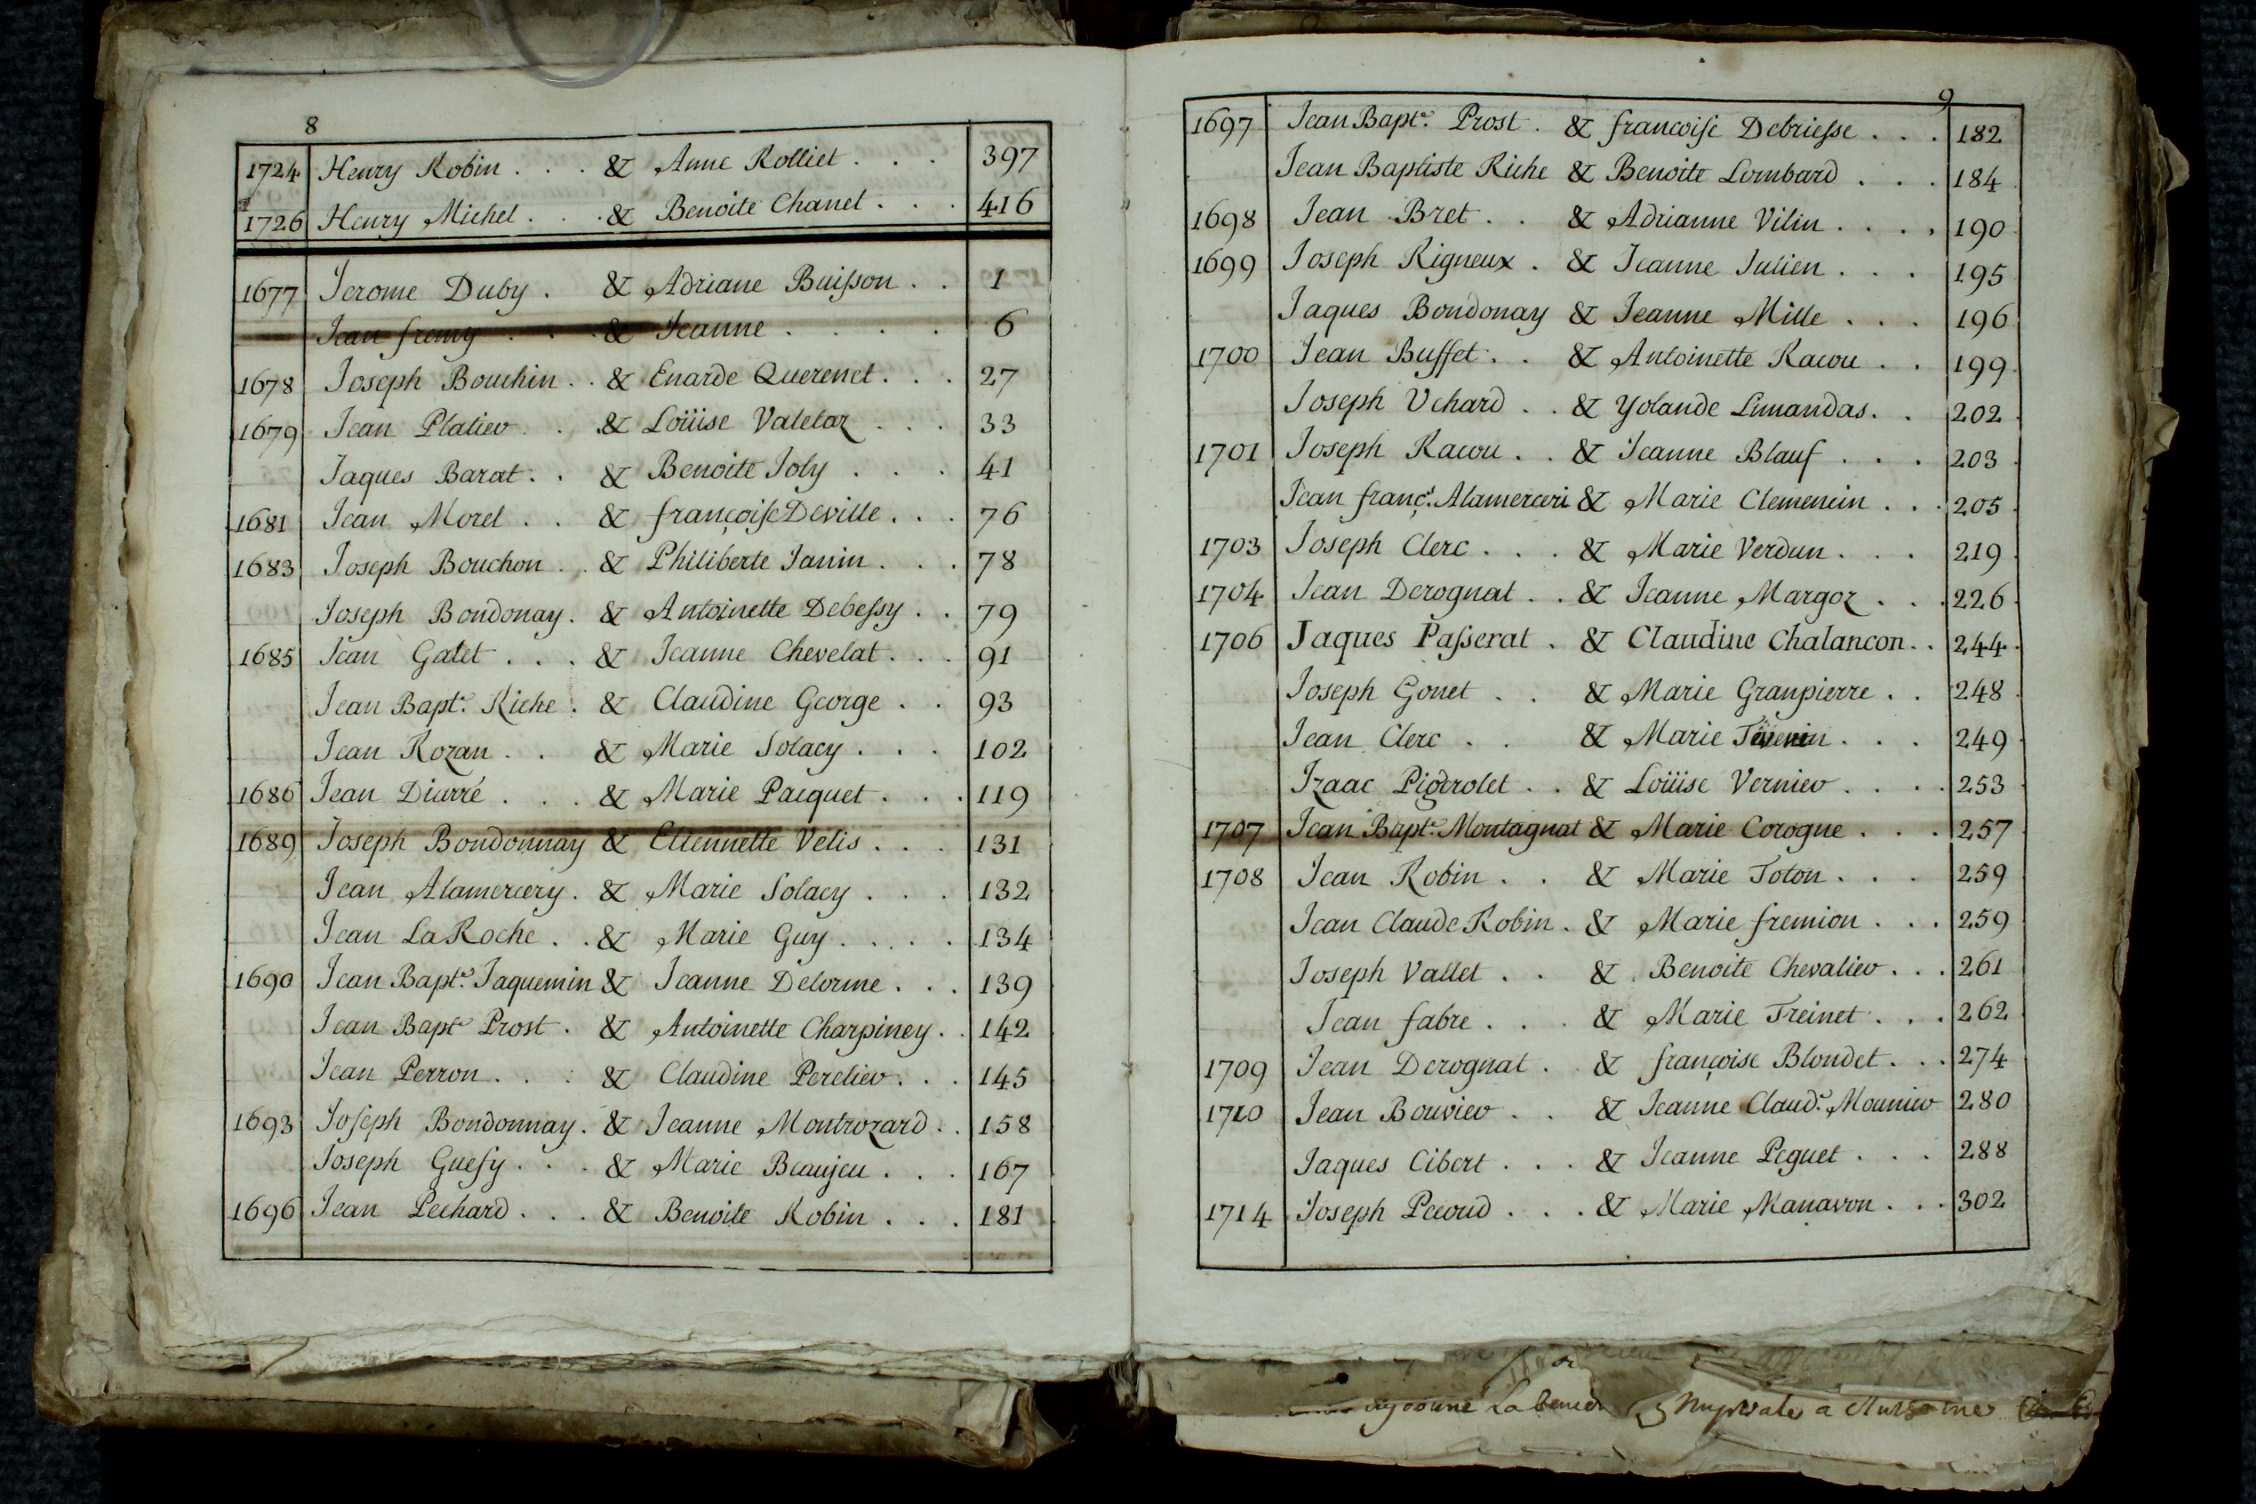 8
1724 Henry Robin . . . & Anne Rolliet . . . 397
1726 Henry Michel . . . & Benoite Chanel . . . 416
1677 Jerome Duby . & Adriane Buisson . . 1
Jean fremy . . . & Jeanne . . . . 6
1678 Joseph Bouchin . . & Enarde Querenet . . . 27
1679 Jean Platier . . & Loüise Valelaz . . . 33
Jaques Barat . . & Benoite Joly . . . 41
1681 Jean Morel . . & françoise Deville . . . 76
1683 Joseph Bouchon . . & Philiberte Janin . . . 78
Joseph Bondonay . & Antoinette Debessy . . 79
1685 Jean Galet . . . & Jeanne Chevelat . . . 91
Jean Bapt.e Riche . & Claudine George . . 93
Jean Rozan . . & Marie Solacy . . . 102
1686 Jean Diurré . . . & Marie Pacquet . . . 119
1689 Joseph Bondonnay & Etiennette Velis . . . 131
Jean Alamercery . & Marie Solacy . . . 132
Jean LaRoche . . & Marie Guy . . . . 134
1690 Jean Bapt.e Jaquemin & Jeanne Delorme . . . 139
Jean Bapt.e Prost . & Antoinette Charpiney . . 142
Jean Perron . . . & Claudine Perelier . . . 145
1693 Joseph Bondonnay . & Jeanne Montrozard . . 158
Joseph Guesy . . . & Marie Beaujeu . . . 167
1696 Jean Pechard . . . & Benoite Robin . . . 181
9
1697 Jean Bapt.e Prost . & francoise Debriesse . . . 182
Jean Baptiste Riche & Benoite Lombard . . . 184
1698 Jean Bret . . & Adrianne Vilin . . . . 190
1699 Joseph Rigneux . & Jeanne Julien . . . 195
Jaques Bondonay & Jeanne Mille . . . 196
1700 Jean Buffet . . & Antoinette Racou . . 199
Joseph Uchard . . & Yolande Limandas . . 202
1701 Joseph Racou . . & Jeanne Blauf . . . 203
Jean franç.s Alamerceri & Marie Clemencin . . . 205
1703 Joseph Clerc . . . & Marie Verdun . . . 219
1704 Jean Derognat . . & Jeanne Margoz . . . 226
1706 Jaques Passerat . & Claudine Chalancon . . 244
Joseph Gonet . . & Marie Granpierre . . 248
Jean Clerc . . & Marie . . . 249
Izaac Pigerolet . . & Loüise Vernier . . . . 253
1707 Jean Bapt.e Montagnat & Marie Corogne . . . 257
1708 Jean Robin . . & Marie Toton . . . 259
Jean Claude Robin . & Marie fremion . . . 259
Joseph Vallet . . & Benoite Chevalier . . . 261
Jean fabre . . . & Marie Treinet . . . 262
1709 Jean Derognat . & françoise Blondet . . . 274
1710 Jean Bouvier . . & Jeanne Claud.e Mounier 280
Jaques Cibert . . . & Jeanne Peguet . . . 288
1714 Joseph Pecoud . . . & Marie Manavon . . . 302
Nuptiale a